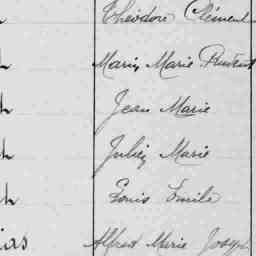 Théodore Clément
h Marin Marie Prudent
h Jean Marie
h Julien Marie
h Louis Emile
ias Alfred Marie Joseph